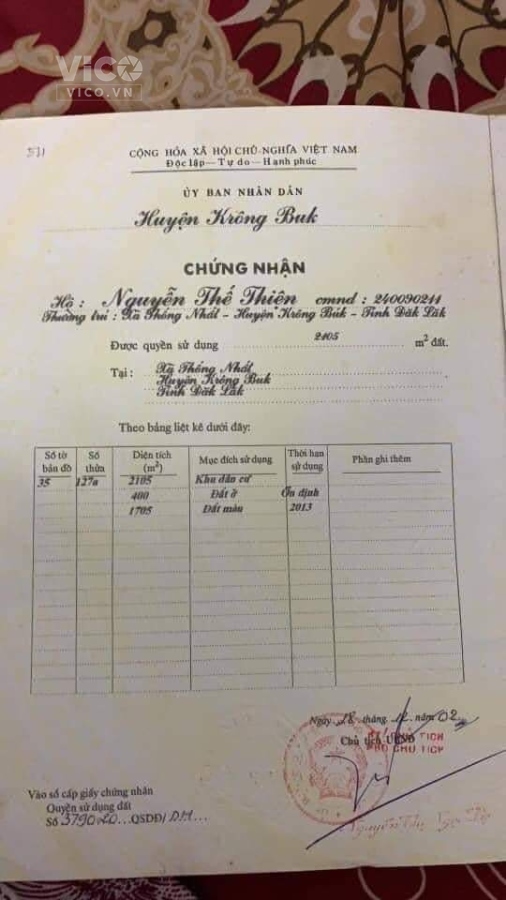 VICO
VICO.VN
CỘNG HÒA XÃ HỘI CHỦ NGHĨA VIỆT NAM
Độc lập — Tự do — Hạnh phúc
ỦY BAN NHÂN DÂN
Huyện Krông Buk
CHỨNG NHẬN
Hộ : Nguyễn Thế Thiện cmnd : 240090211
Thường trú : Xã Thống Nhất - Huyện Krông Búk - Tỉnh Đăk Lăk
Được quyền sử dụng 2105 m² đất.
Tại : Xã Thống Nhất
Huyện Krông Buk
Tỉnh Đăk Lăk
Theo bảng liệt kê dưới đây:
Số tờ bản đồ Số thửa Diện tích (m²) Mục đích sử dụng Thời hạn sử dụng Phần ghi thêm
35 127a 2105 Khu dân cư
400 Đất ở Ổn định
1705 Đất màu 2013
Ngày 18 tháng 12 năm 02
Chủ tịch UBND
PHÓ CHỦ TỊCH
Vào sổ cấp giấy chứng nhân
Quyền sử dụng đất
Số 379020...QSDĐ/ DM...
Nguyễn